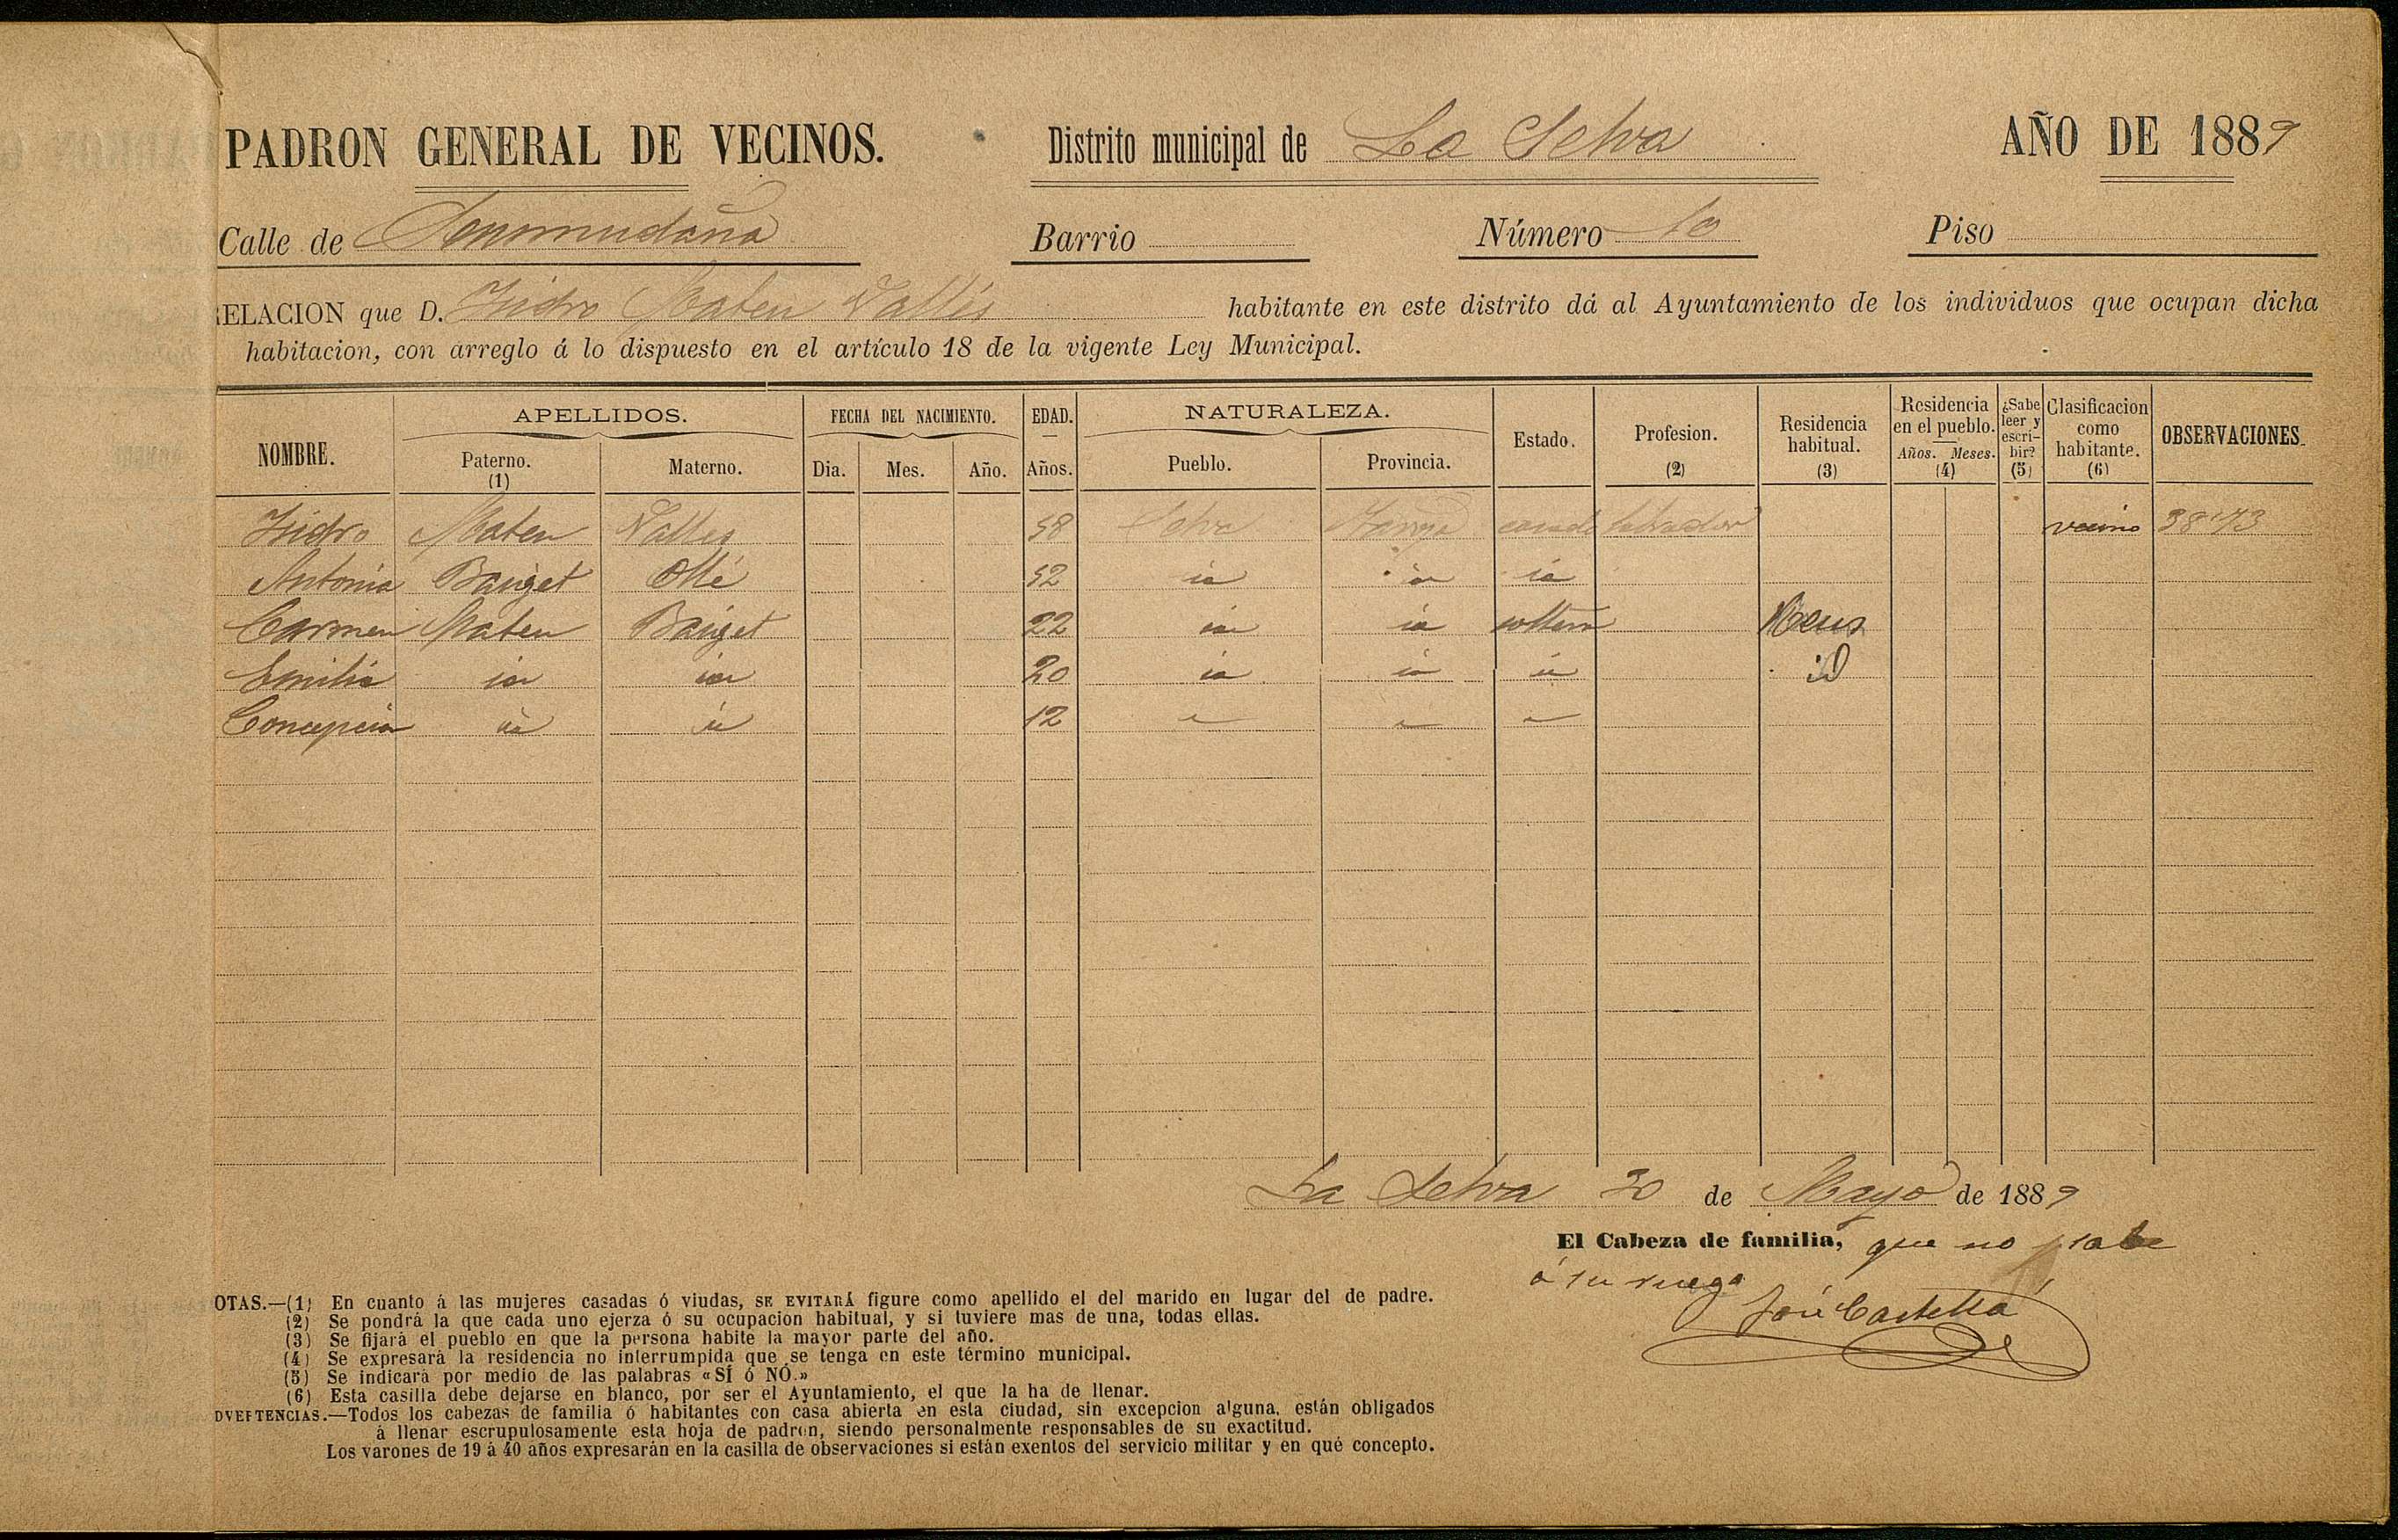 PADRON GENERAL DE VECINOS. Distrito municipal de La Selva AÑO DE 1889
Calle de Barrio Número 10 Piso
RELACION que D. Isidro Mateu Vallés habitante en este distrito dá al Ayuntamiento de los individuos que ocupan dicha
habitacion, con arreglo á lo dispuesto en el artículo 18 de la vigente Ley Municipal.
NOMBRE. APELLIDOS. Paterno. (1) Materno. FECHA DEL NACIMIENTO. Dia. Mes. Año. EDAD. Años. NATURALEZA. Pueblo. Provincia. Estado. Profesion. (2) Residencia habitual. (3) Residencia en el pueblo. Años. Meses. (4) ¿Sabe leer y escribir? (5) Clasificacion como habitante. (6) OBSERVACIONES.
Isidro Mateu Valles 58 Selva casado labrador vecino 38'73
Antonia Baiget Ollé 52 id id id
Carmen Mateu Baiget 22 id id soltera Reus
Emilia id id 20 id id id iD
Concepcion id id 12 " " "
La Selva 30 de Mayo de 1889
El Cabeza de familia, que no sabe
á su ruego
José Castellá
OTAS.—(1) En cuanto á las mujeres casadas ó viudas, SE EVITARÁ figure como apellido el del marido en lugar del de padre.
(2) Se pondrá la que cada uno ejerza ó su ocupacion habitual, y si tuviere mas de una, todas ellas.
(3) Se fijará el pueblo en que la persona habite la mayor parte del año.
(4) Se expresará la residencia no interrumpida que se tenga en este término municipal.
(5) Se indicará por medio de las palabras «SÍ ó NÓ.»
(6) Esta casilla debe dejarse en blanco, por ser el Ayuntamiento, el que la ha de llenar.
DVERTENCIAS.—Todos los cabezas de familia ó habitantes con casa abierta en esta ciudad, sin excepcion alguna, están obligados
á llenar escrupulosamente esta hoja de padron, siendo personalmente responsables de su exactitud.
Los varones de 19 á 40 años expresarán en la casilla de observaciones si están exentos del servicio militar y en qué concepto.